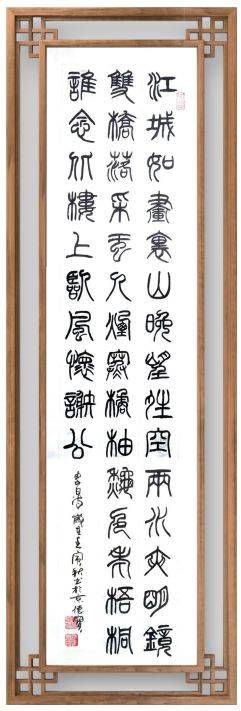 江城如畫裏山晚望姓空兩水夾明鏡
雙橋落采虹人煙寒橘柚秋色老梧桐
誰念北樓上臨風懷謝公